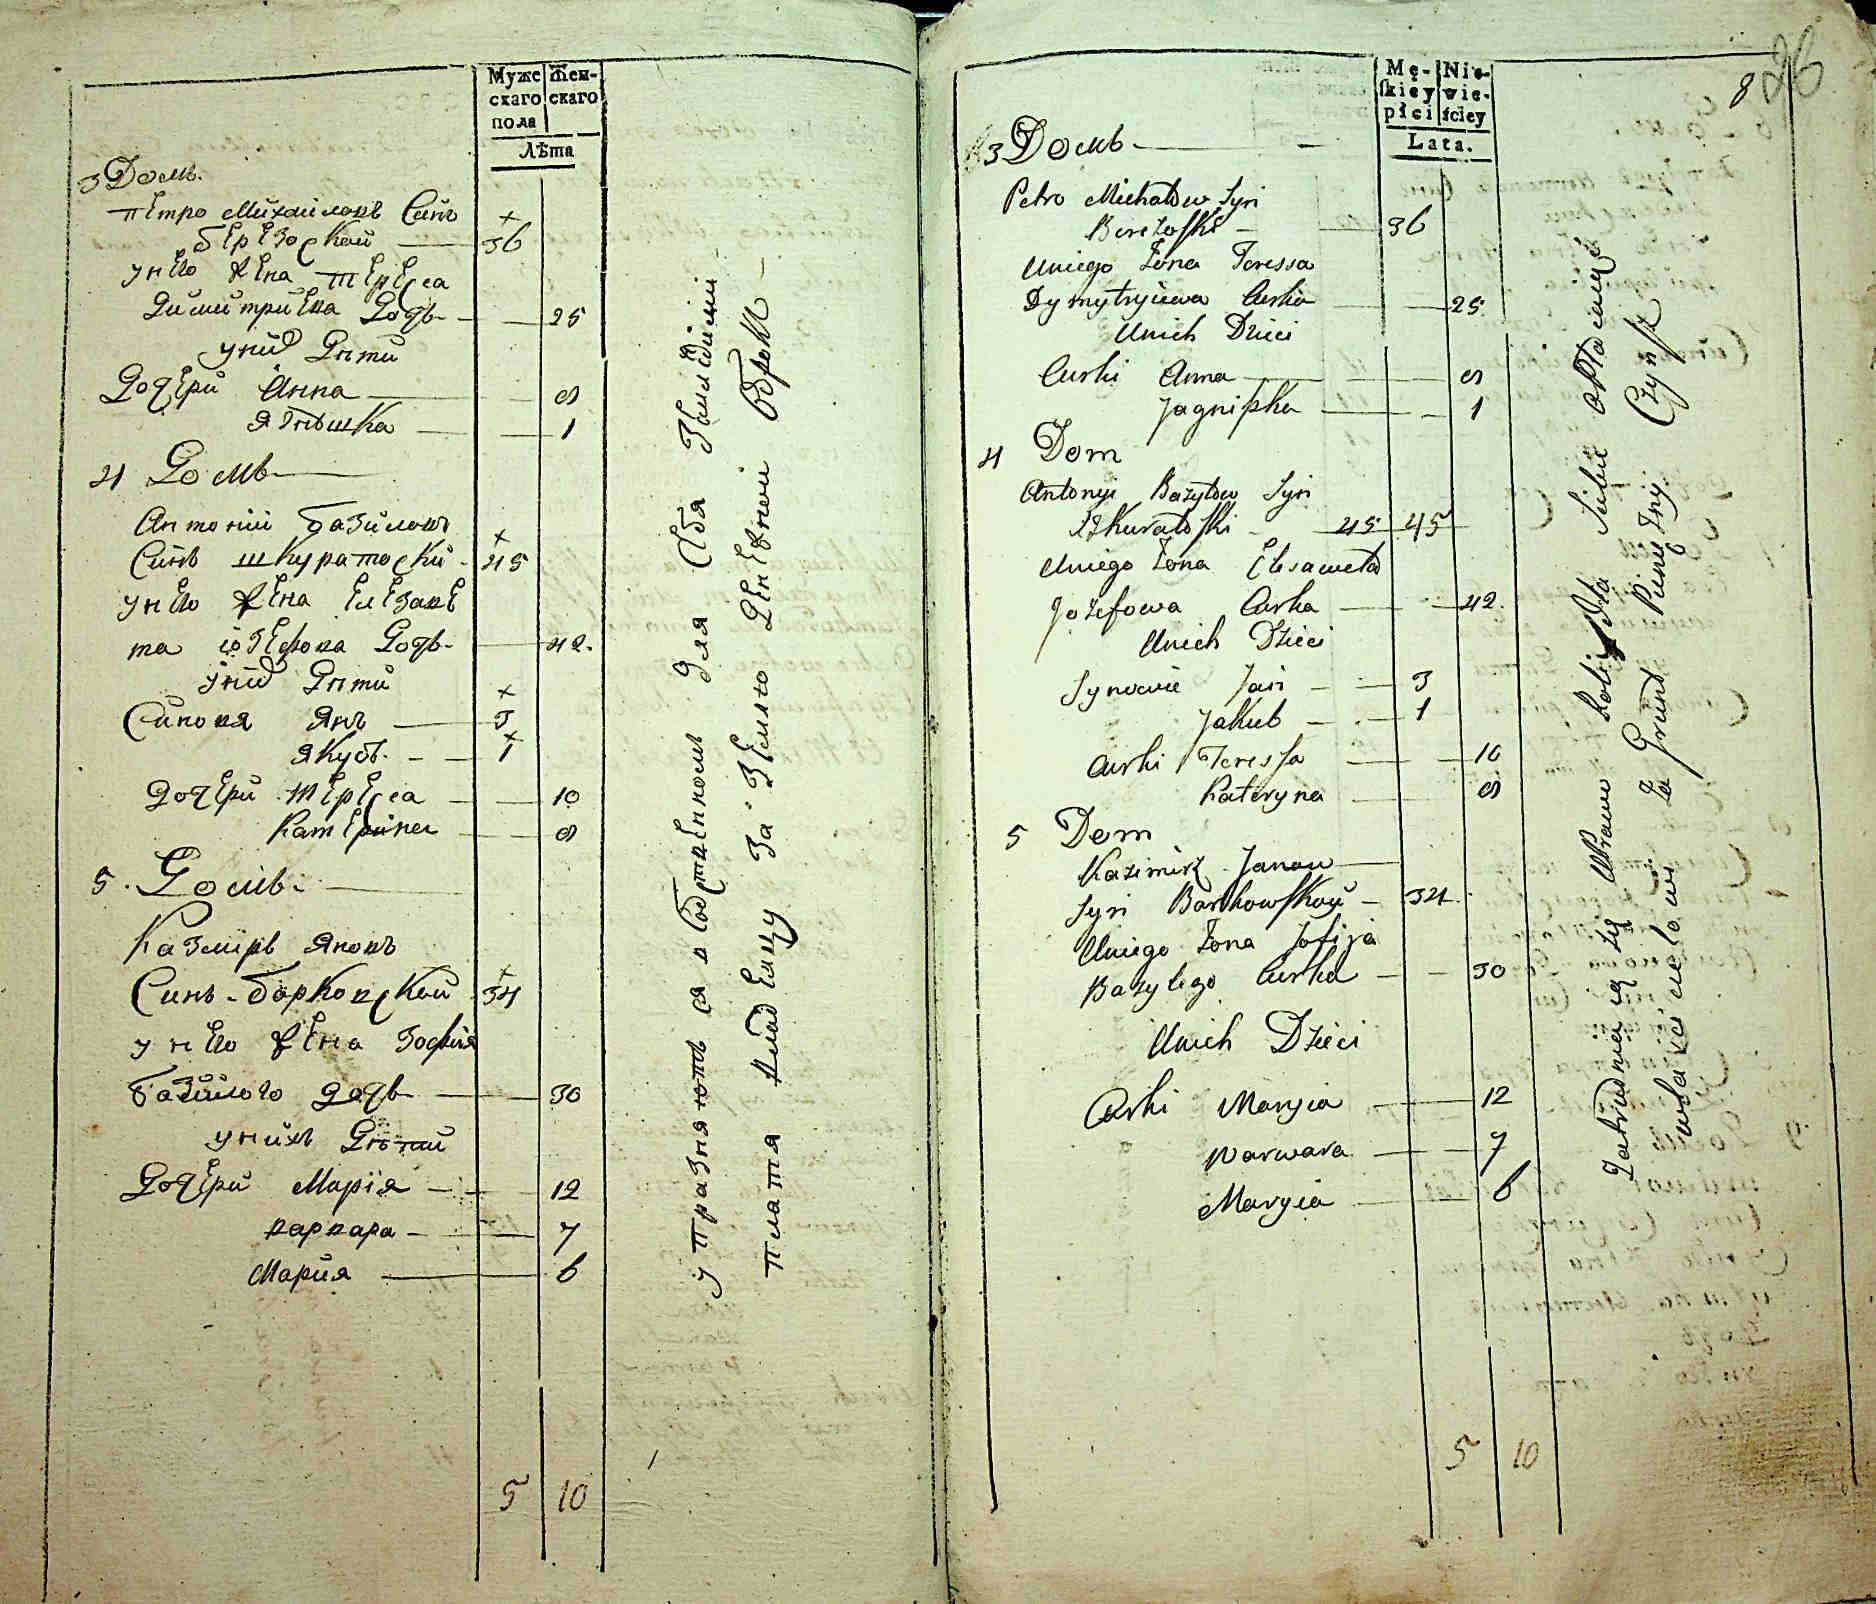 Муже
скаго
пола
Жен-
скаго
Лѣта
3 Домъ.
Петро Михайловъ Синъ
Березоской 36
у него жена Тереса
Димитриева Дочь 25
у них Дѣти
Дочери Анна 8
Ягнѣшка 1
4 Домъ
Антоний Базиловъ
Синъ Шкуратоский 45
у него жена Елезаве
та Іозефова Дочь 42.
у них Дѣти
Синовя Янъ 3
Якубъ. 1
Дочери Тереса 10
Катерина 8
5. Домъ.
Казмиръ Яновъ
Синъ Борковской 34
у него жена Зофия
Базилого дочь 30
у нихъ Дѣти
Дочери Марія 12
Варвара 7
Мария 6
5 10
упразняютъ ся в собственномъ для себя земледѣлии
платя владелцу за землю денежний оброкъ
8
26
Mę-
skiey
płci
Nie-
wie-
ściey
Lata.
3 Домъ
Petro Michałow Syn
Berezoski 36
Uniego Zona Teressa
Dymytryiewa Curka 25
Unich Dzieci
Curki Anna 8
Jagniszka 1
4 Dom
Antonyi Bazylow Syn
Szkuratoski 45 45
Uniego Zona Elisaweta
Jozefowa Curka 42.
Unich Dzieci
Synowie Jan 3
Jakub 1
Curki Teressa 10
Kateryna 8
5 Dom
Kazimirz Janow
Syn Barkowskoy 34.
Uniego Zona Zofija
Bazylego Curka 30
Unich Dzieci
Curki Maryia 12
Warwara 7
Maryia 6
5 10
Zatrudniaią się Uprawą Roli Dla Siebie opłacaiąc
właścicielowi Za Grunt Piniężny Czynsz